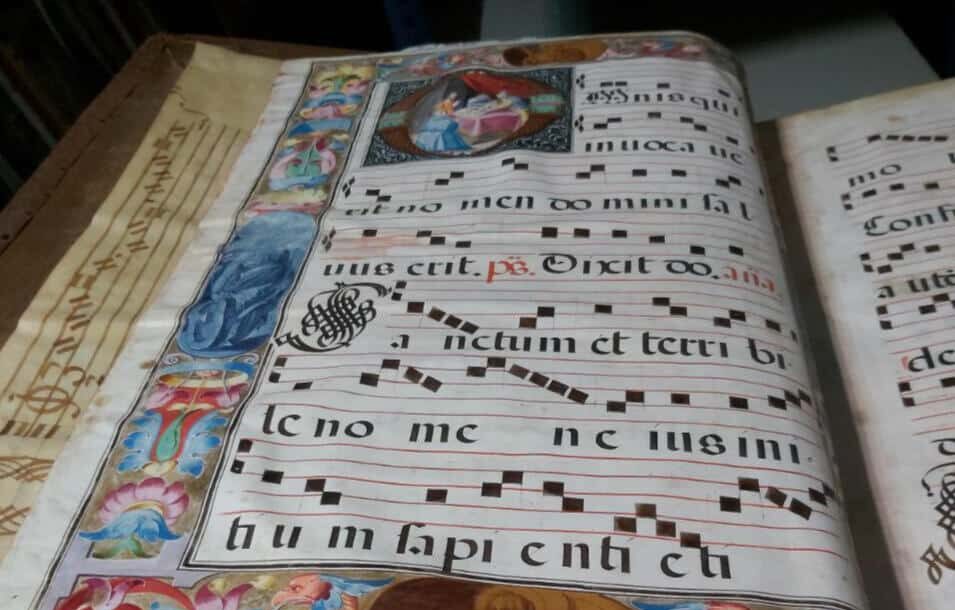 Omnisqui
inuoca ue
rit no men do mini sal
uus erit. ps. Dixit do. ana.
Sa nctum et terri bi
le no me n e ius ini
ti u m sapi e nti e ti
mo
Confi
a